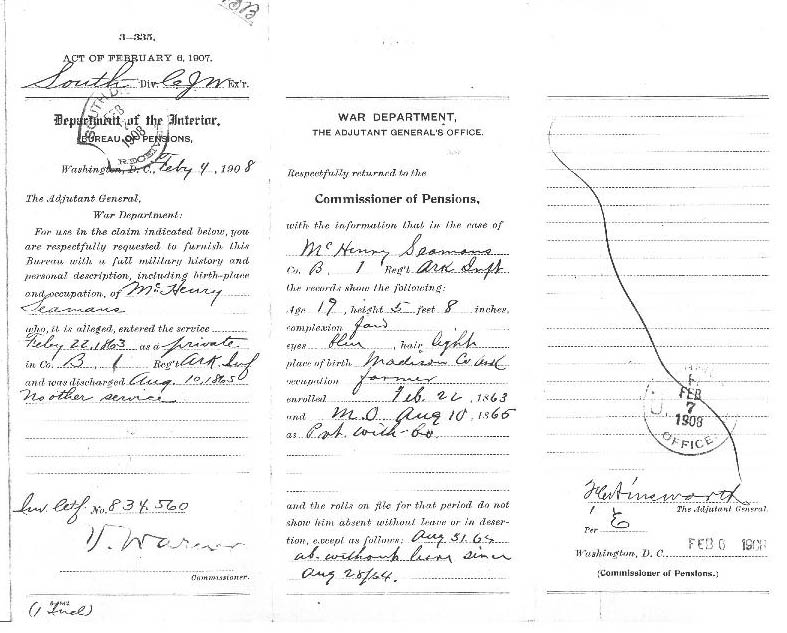 3—335.
ACT OF FEBRUARY 6, 1907.
South Div. Ex'r.
Department of the Interior,
BUREAU OF PENSIONS,
Washington, D. C., Feby 4, 1908
The Adjutant General,
War Department:
For use in the claim indicated below, you
are respectfully requested to furnish this
Bureau with a full military history and
personal description, including birth-place
and occupation, of McHenry
Seamans
who, it is alleged, entered the service
Feby 22, 1863 as a private
in Co. B, 1 Reg't Ark Inf
and was discharged Aug. 10, 1865
No other service
Inv. Ctf. No. 834.560
V. Warner
Commissioner.
(1 Incl)
WAR DEPARTMENT,
THE ADJUTANT GENERAL'S OFFICE.
Respectfully returned to the
Commissioner of Pensions,
with the information that in the case of
McHenry Seamans
Co. B, 1 Reg't Ark Inft
the records show the following:
Age 19, height 5 feet 8 inches,
complexion fair
eyes Blue, hair light
place of birth Madison Co Ark
occupation farmer
enrolled Feb. 22, 1863
and M.O. Aug 10, 1865
as Pvt. with Co.
and the rolls on file for that period do not
show him absent without leave or in deser-
tion, except as follows: Aug 31.64
ab. without leave since
Aug 28/64.
FEB
7
1908
OFFICE
F C Ainsworth
The Adjutant General.
Per E
Washington, D. C. FEB 6 1908
(Commissioner of Pensions.)